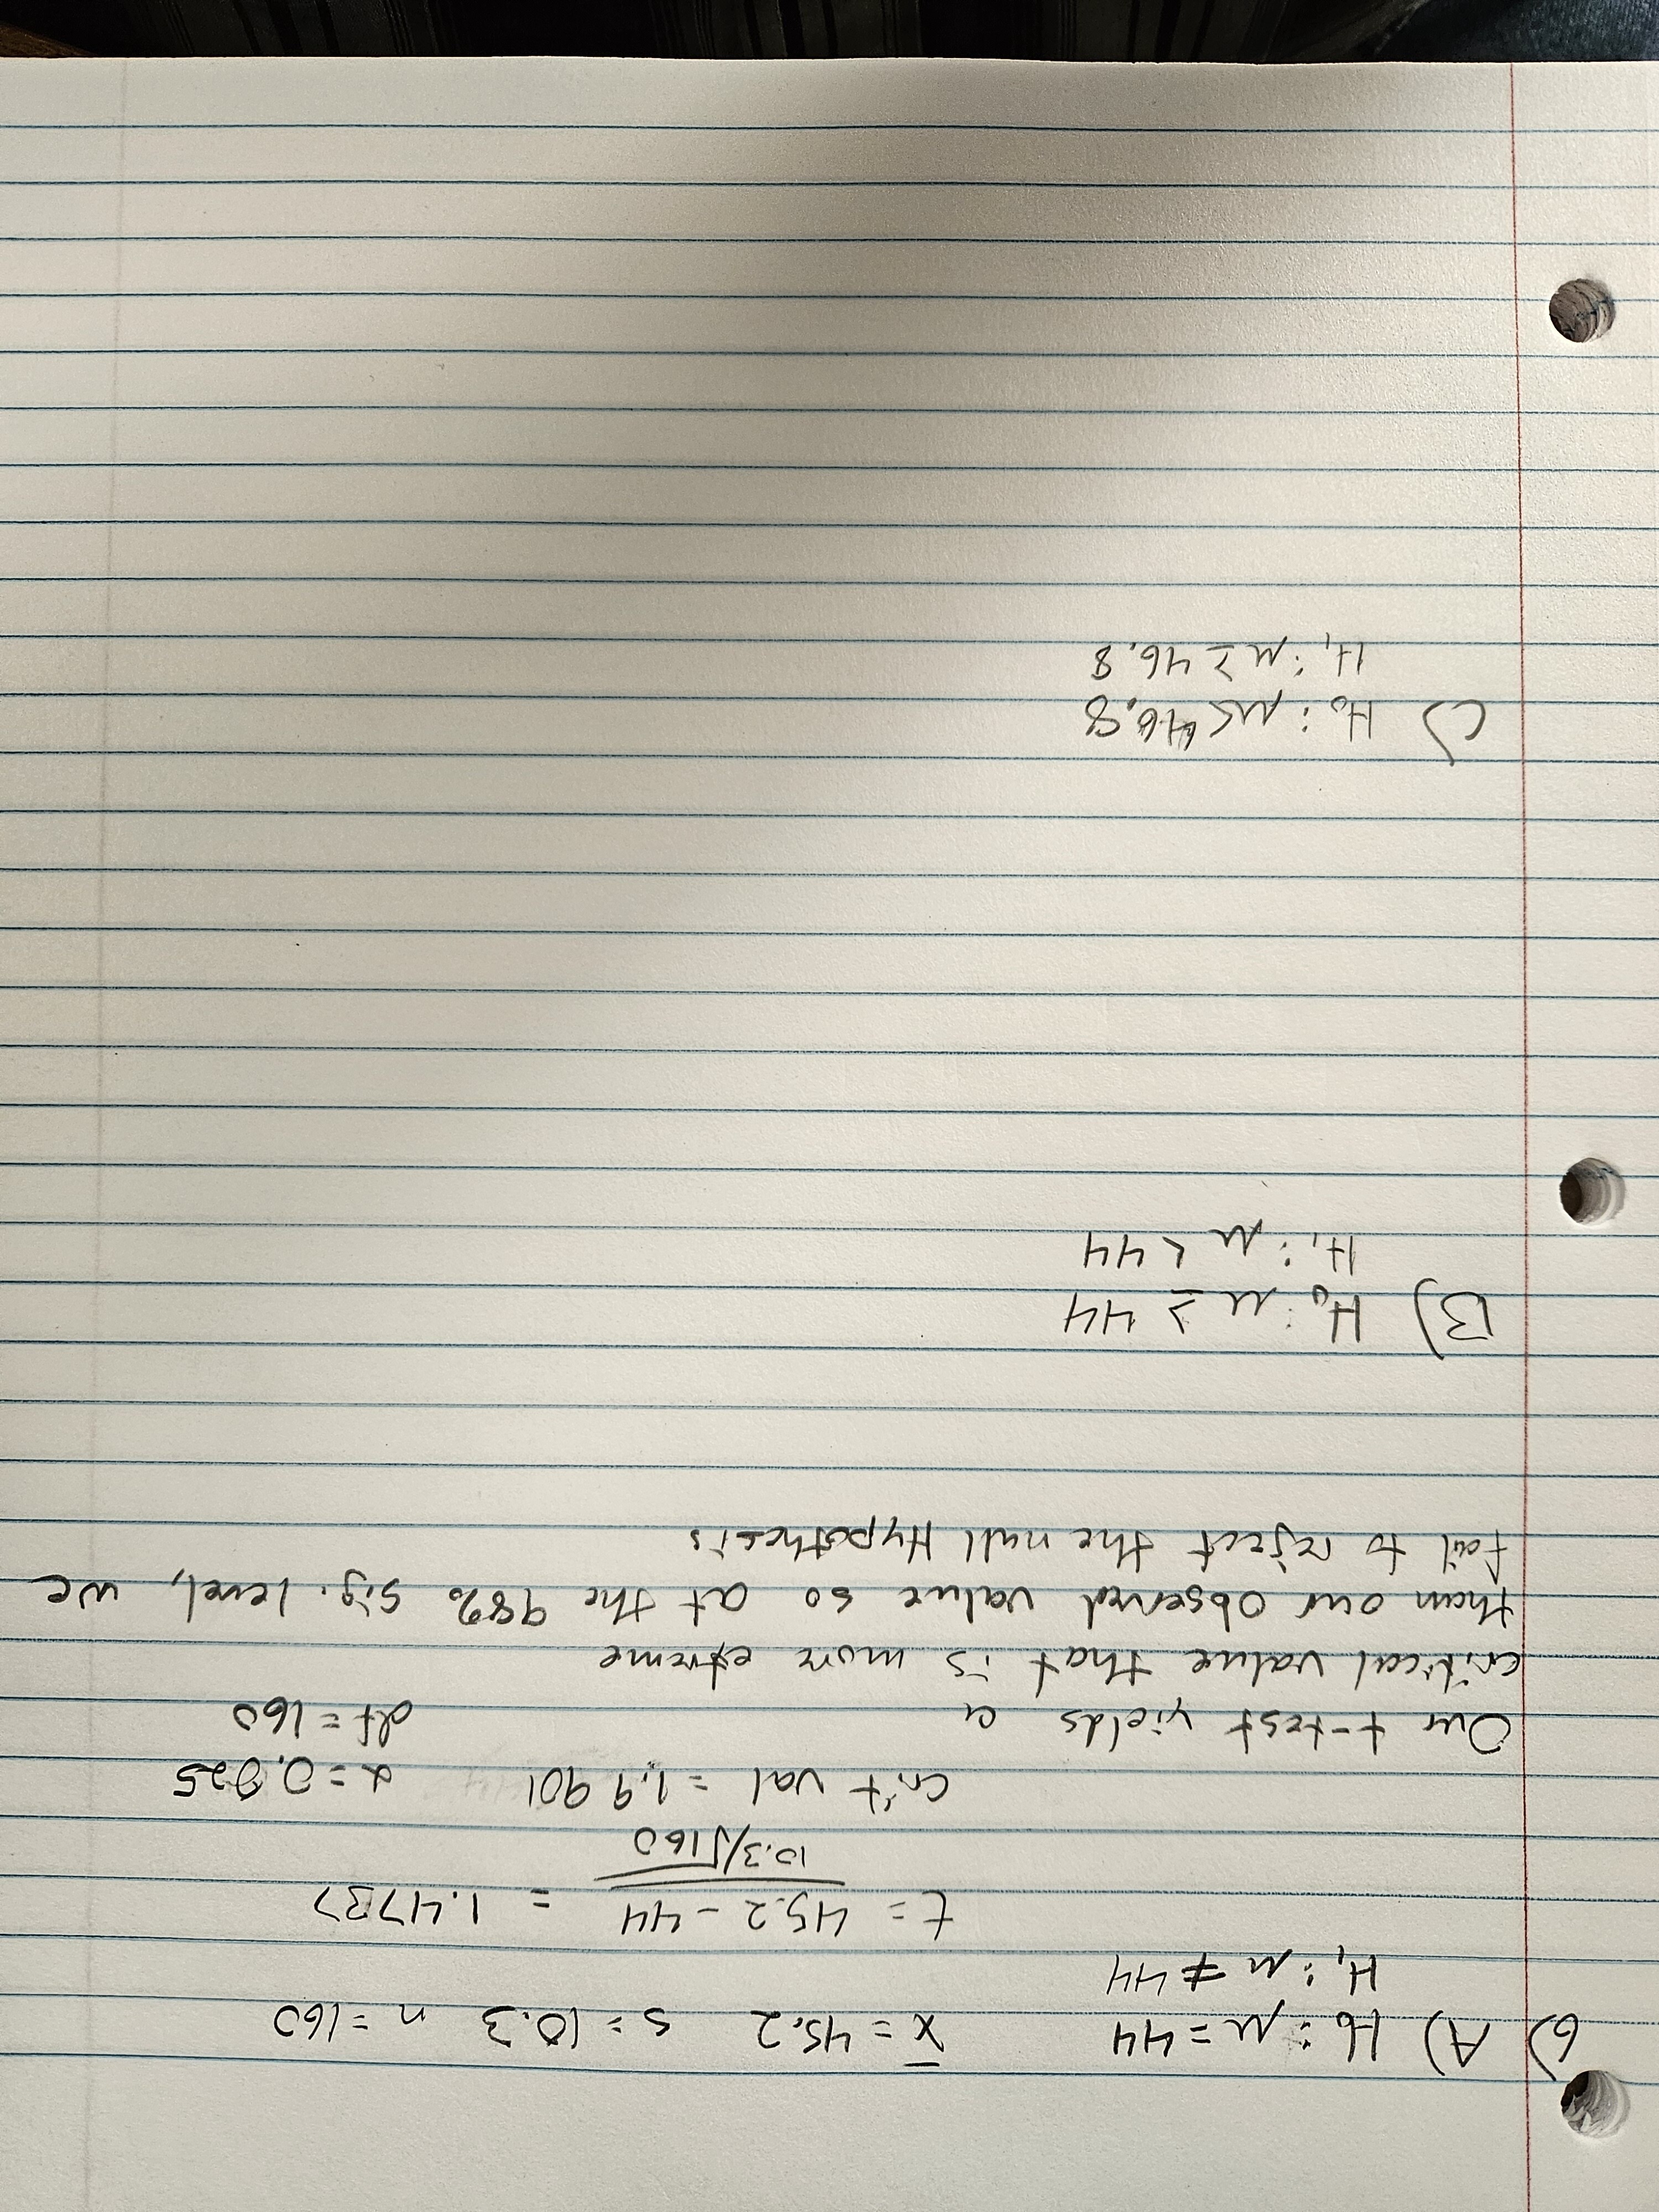 6) A) H₀ : μ = 44 x̄ = 45.2 s = 10.3 n = 160
H₁ : μ ≠ 44
t = 45.2 - 44 / 10.3/√160 = 1.4737
crit val = 1.9901 α = 0.025
Our t-test yields a df = 160
critical value that is more etreme
than our observed value so at the 98% sig. level, we
fail to reject the null Hypothesis
B) H₀ : μ ≥ 44
H₁ : μ < 44
C) H₀ : μ < 46.8
H₁ : μ ≥ 46.8